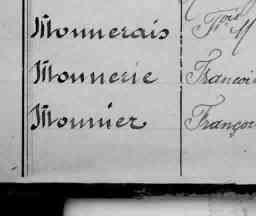 Monnerais Fçois M
Monnerie Francois
Monnier Franço